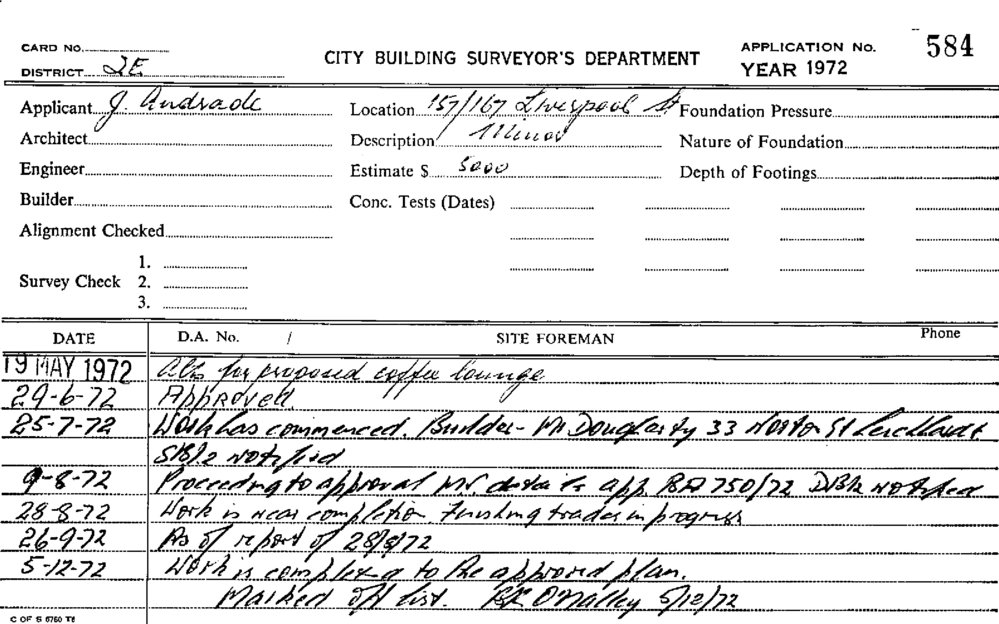 CARD No.
DISTRICT 2E
CITY BUILDING SURVEYOR'S DEPARTMENT
APPLICATION No. 584
YEAR 1972
Applicant J. Andrade
Location 157/167 Liverpool St
Foundation Pressure
Architect
Description Minor
Nature of Foundation
Engineer
Estimate $ 5000
Depth of Footings
Builder
Conc. Tests (Dates)
Alignment Checked
Survey Check 1.
2.
3.
DATE D.A. No. / SITE FOREMAN Phone
19 MAY 1972 Alts for proposed coffee lounge
29-6-72 Approved.
25-7-72 Work has commenced. Builder - Mr Dougharty 33 Norton St
notified
9-8-72 Proceeding to approval details app. BA 750/72 notified
28-8-72 Work is near completion. Finishing trades in progress
26-9-72 As of report of 28/8/72
5-12-72 Work is completed to the approved plan.
Marked off list. O'Malley 5/12/72
C OF S 6760 T8